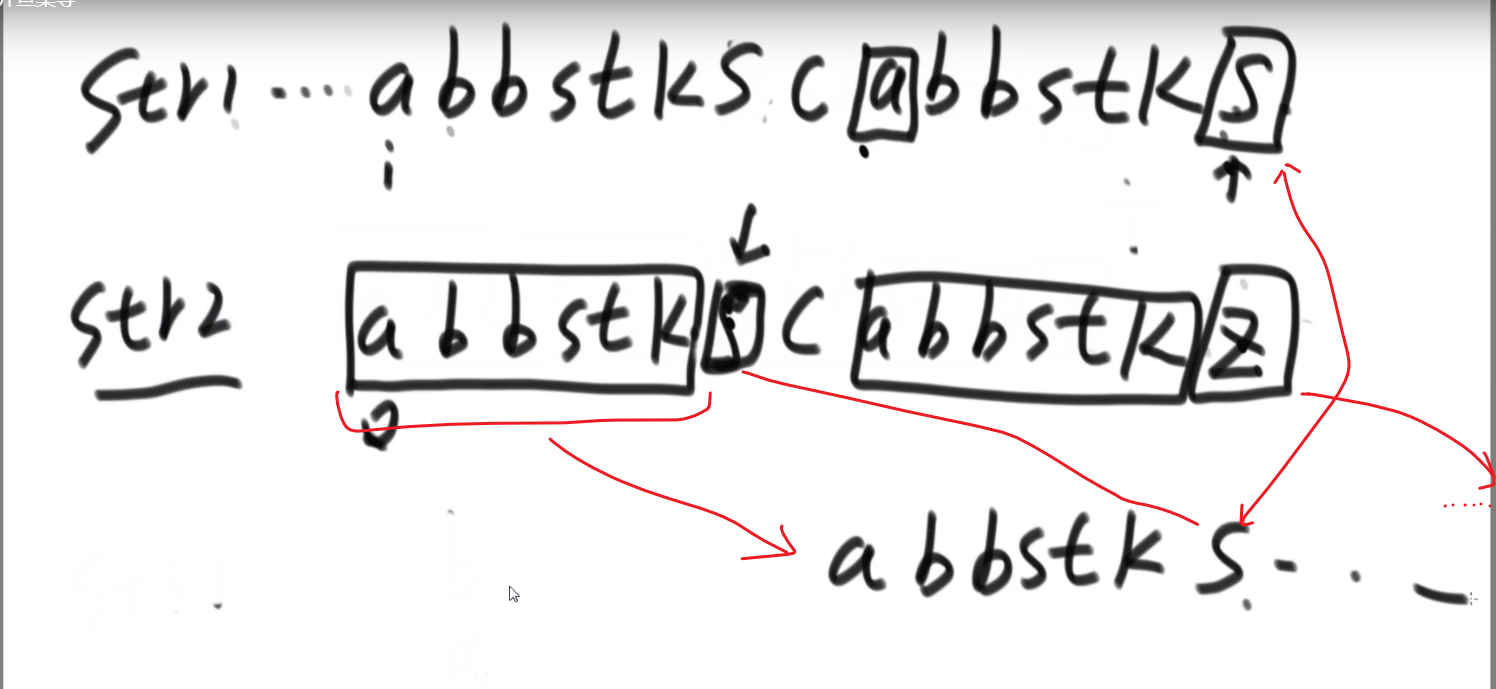 str1 .... a b b s t k s c a b b s t k s
i
str2 a b b s t k s c a b b s t k z
0
a b b s t k s - . . _